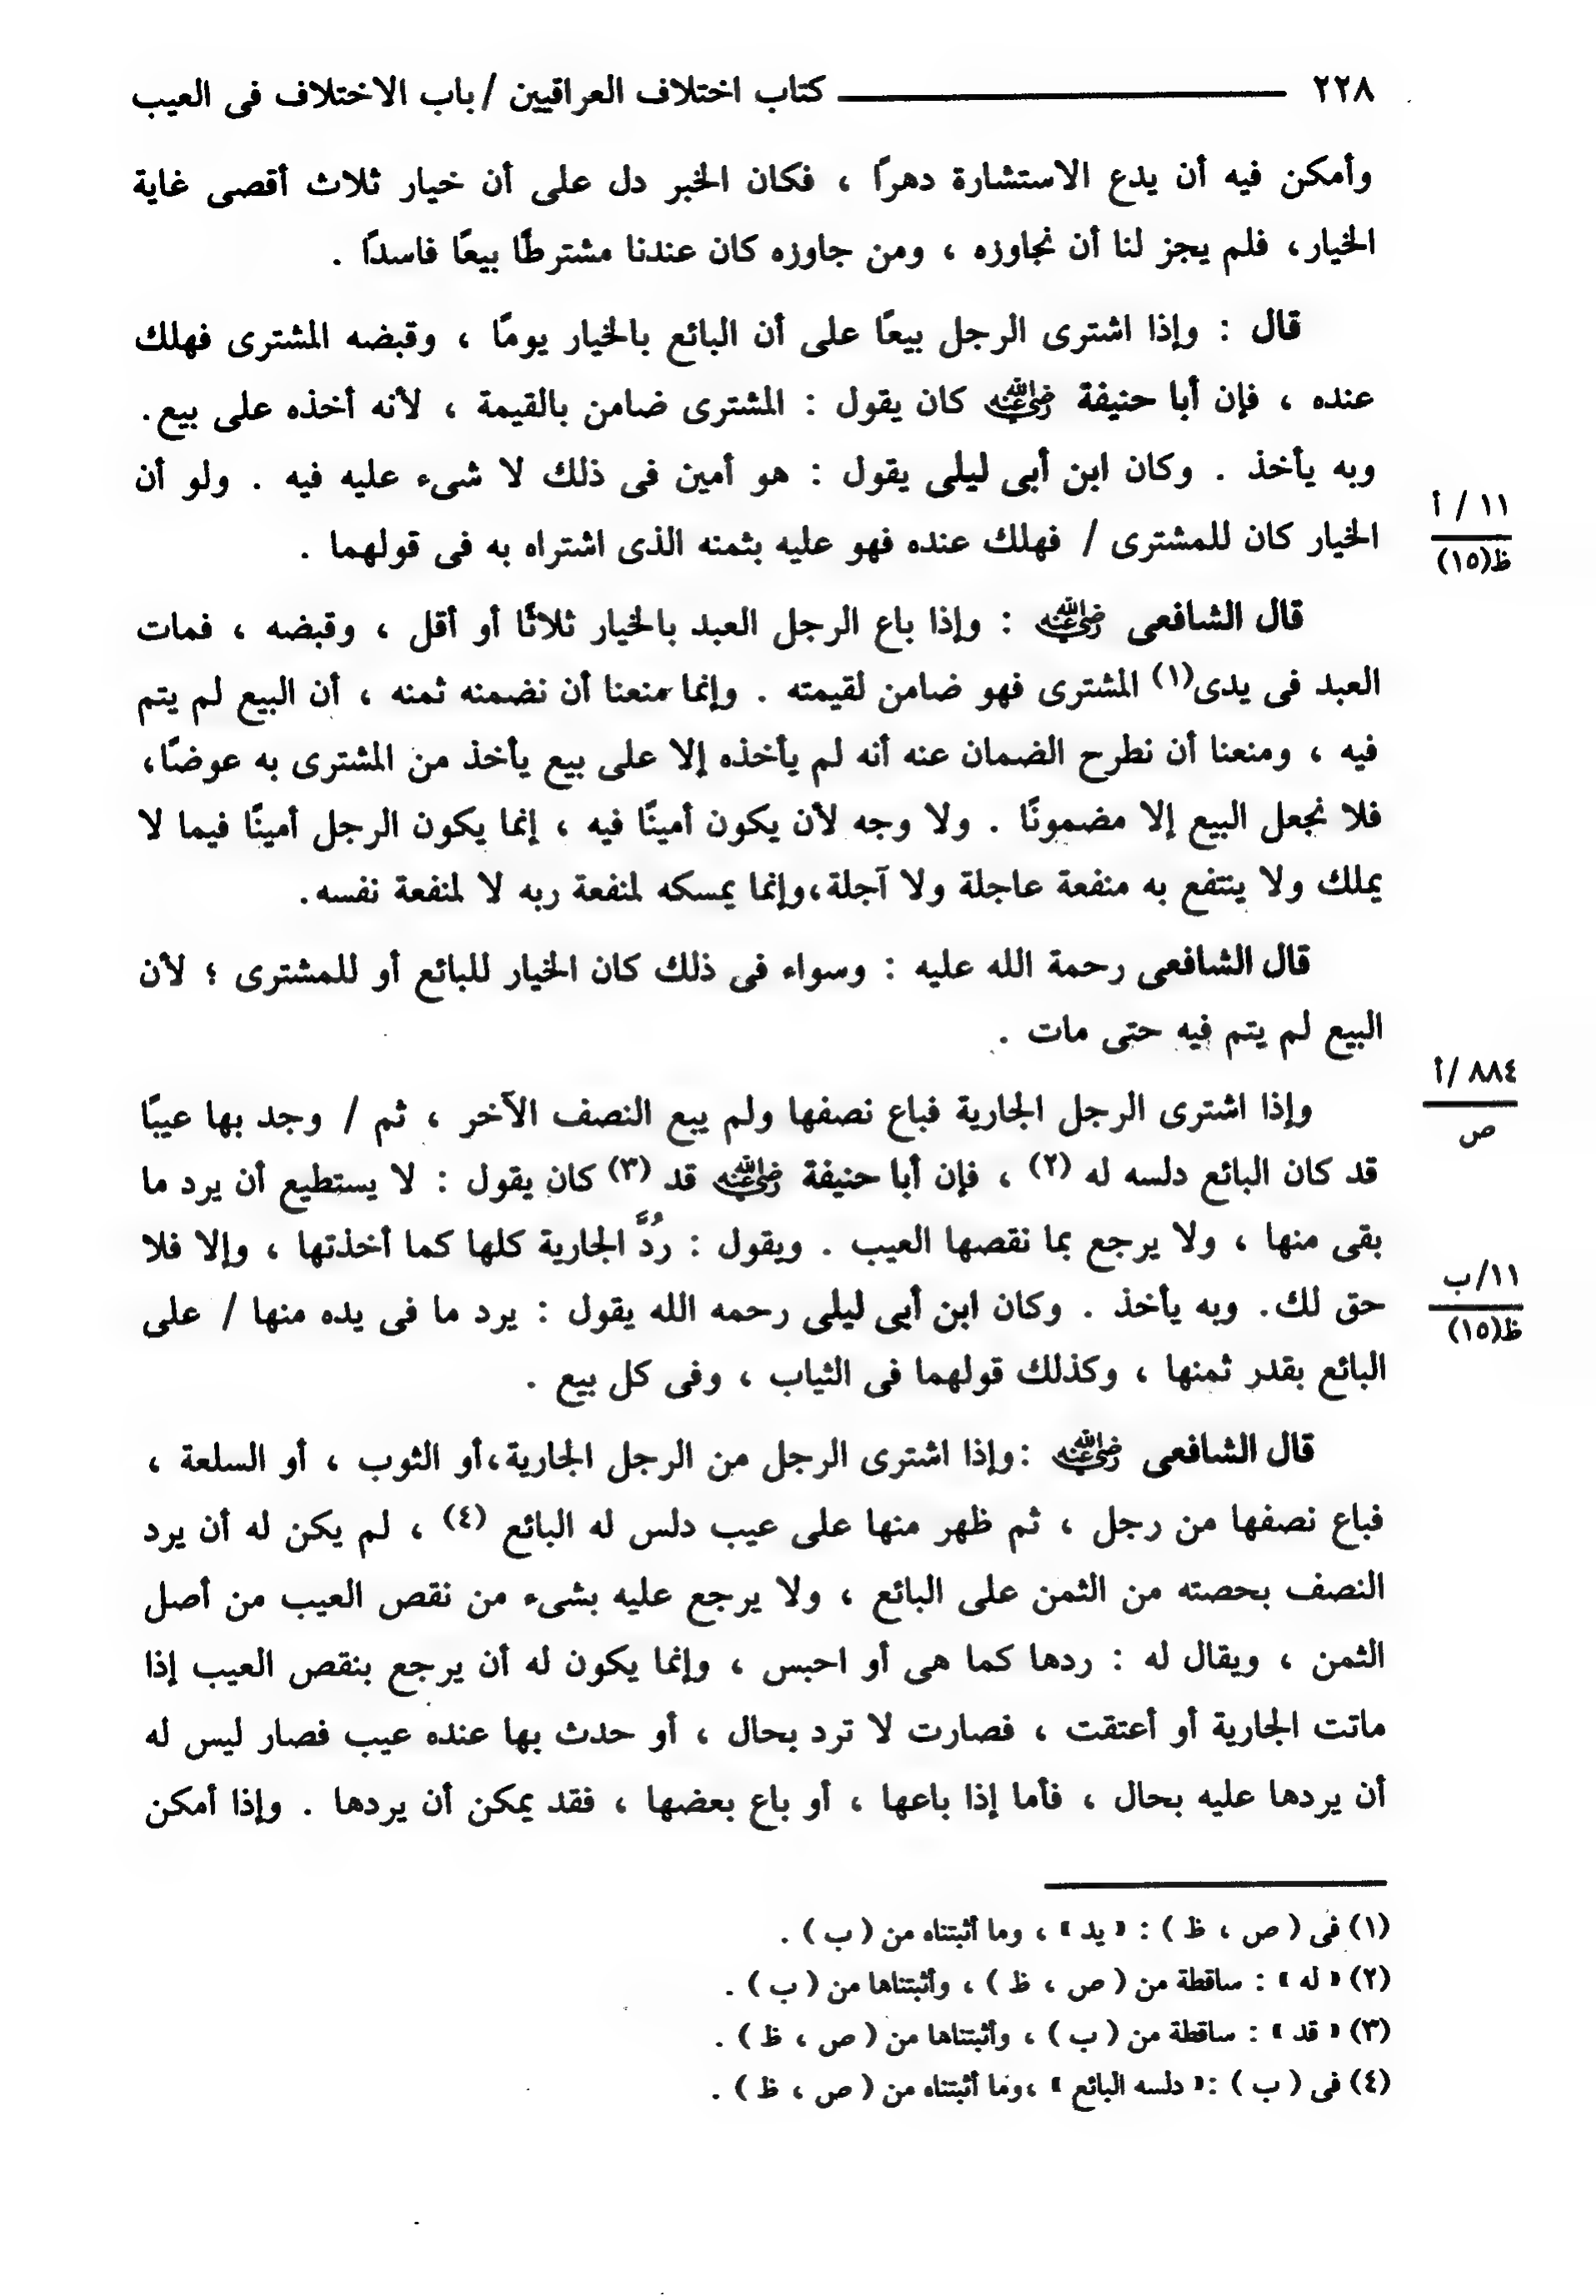 ٢٢٨ كتاب اختلاف العراقيين / باب الاختلاف فى العيب
وأمكن فيه أن يدع الاستشارة دهراً ، فكان الخبر دل على أن خيار ثلاث أقصى غاية
الخيار، فلم يجز لنا أن نجاوزه ، ومن جاوزه كان عندنا مشترطًا بيعًا فاسدًا .
قال : وإذا اشترى الرجل بيعًا على أن البائع بالخيار يومًا ، وقبضه المشترى فهلك
عنده ، فإن أبا حنيفة رضي الله عنه كان يقول : المشترى ضامن بالقيمة ، لأنه أخذه على بيع.
وبه يأخذ . وكان ابن أبى ليلى يقول : هو أمين فى ذلك لا شىء عليه فيه . ولو أن
١١ / أ
ظ(١٥)
الخيار كان للمشترى / فهلك عنده فهو عليه بثمنه الذى اشتراه به فى قولهما .
قال الشافعى رضي الله عنه : وإذا باع الرجل العبد بالخيار ثلاثًا أو أقل ، وقبضه ، فمات
العبد فى يدى(١) المشترى فهو ضامن لقيمته . وإنما منعنا أن نضمنه ثمنه ، أن البيع لم يتم
فيه ، ومنعنا أن نطرح الضمان عنه أنه لم يأخذه إلا على بيع يأخذ من المشترى به عوضًا،
فلا نجعل البيع إلا مضمونًا . ولا وجه لأن يكون أمينًا فيه ، إنما يكون الرجل أمينًا فيما لا
يملك ولا ينتفع به منفعة عاجلة ولا آجلة،وإنما يمسكه لمنفعة ربه لا لمنفعة نفسه.
قال الشافعى رحمة الله عليه : وسواء فى ذلك كان الخيار للبائع أو للمشترى ؛ لأن
البيع لم يتم فيه حتى مات .
٨٨٤ /أ
ص
وإذا اشترى الرجل الجارية فباع نصفها ولم يبع النصف الآخر ، ثم / وجد بها عيبًا
قد كان البائع دلسه له (٢) ، فإن أبا حنيفة رضي الله عنه قد (٣) كان يقول : لا يستطيع أن يرد ما
بقى منها ، ولا يرجع بما نقصها العيب . ويقول : رُدَّ الجارية كلها كما أخذتها ، وإلا فلا
١١/ب
ظ(١٥)
حق لك. وبه يأخذ . وكان ابن أبى ليلى رحمه الله يقول : يرد ما فى يده منها / على
البائع بقدر ثمنها ، وكذلك قولهما فى الثياب ، وفى كل بيع .
قال الشافعى رضي الله عنه :وإذا اشترى الرجل من الرجل الجارية،أو الثوب ، أو السلعة ،
فباع نصفها من رجل ، ثم ظهر منها على عيب دلس له البائع (٤) ، لم يكن له أن يرد
النصف بحصته من الثمن على البائع ، ولا يرجع عليه بشىء من نقص العيب من أصل
الثمن ، ويقال له : ردها كما هى أو احبس ، وإنما يكون له أن يرجع بنقص العيب إذا
ماتت الجارية أو أعتقت ، فصارت لا ترد بحال ، أو حدث بها عنده عيب فصار ليس له
أن يردها عليه بحال ، فأما إذا باعها ، أو باع بعضها ، فقد يمكن أن يردها . وإذا أمكن
(١) فى ( ص ، ظ ) : « يد » ، وما أثبتناه من ( ب ) .
(٢) « له » : ساقطة من ( ص ، ظ ) ، وأثبتناها من ( ب ) .
(٣) « قد » : ساقطة من ( ب ) ، وأثبتناها من ( ص ، ظ ) .
(٤) فى ( ب ) :« دلسه البائع » ،وما أثبتناه من ( ص ، ظ ) .